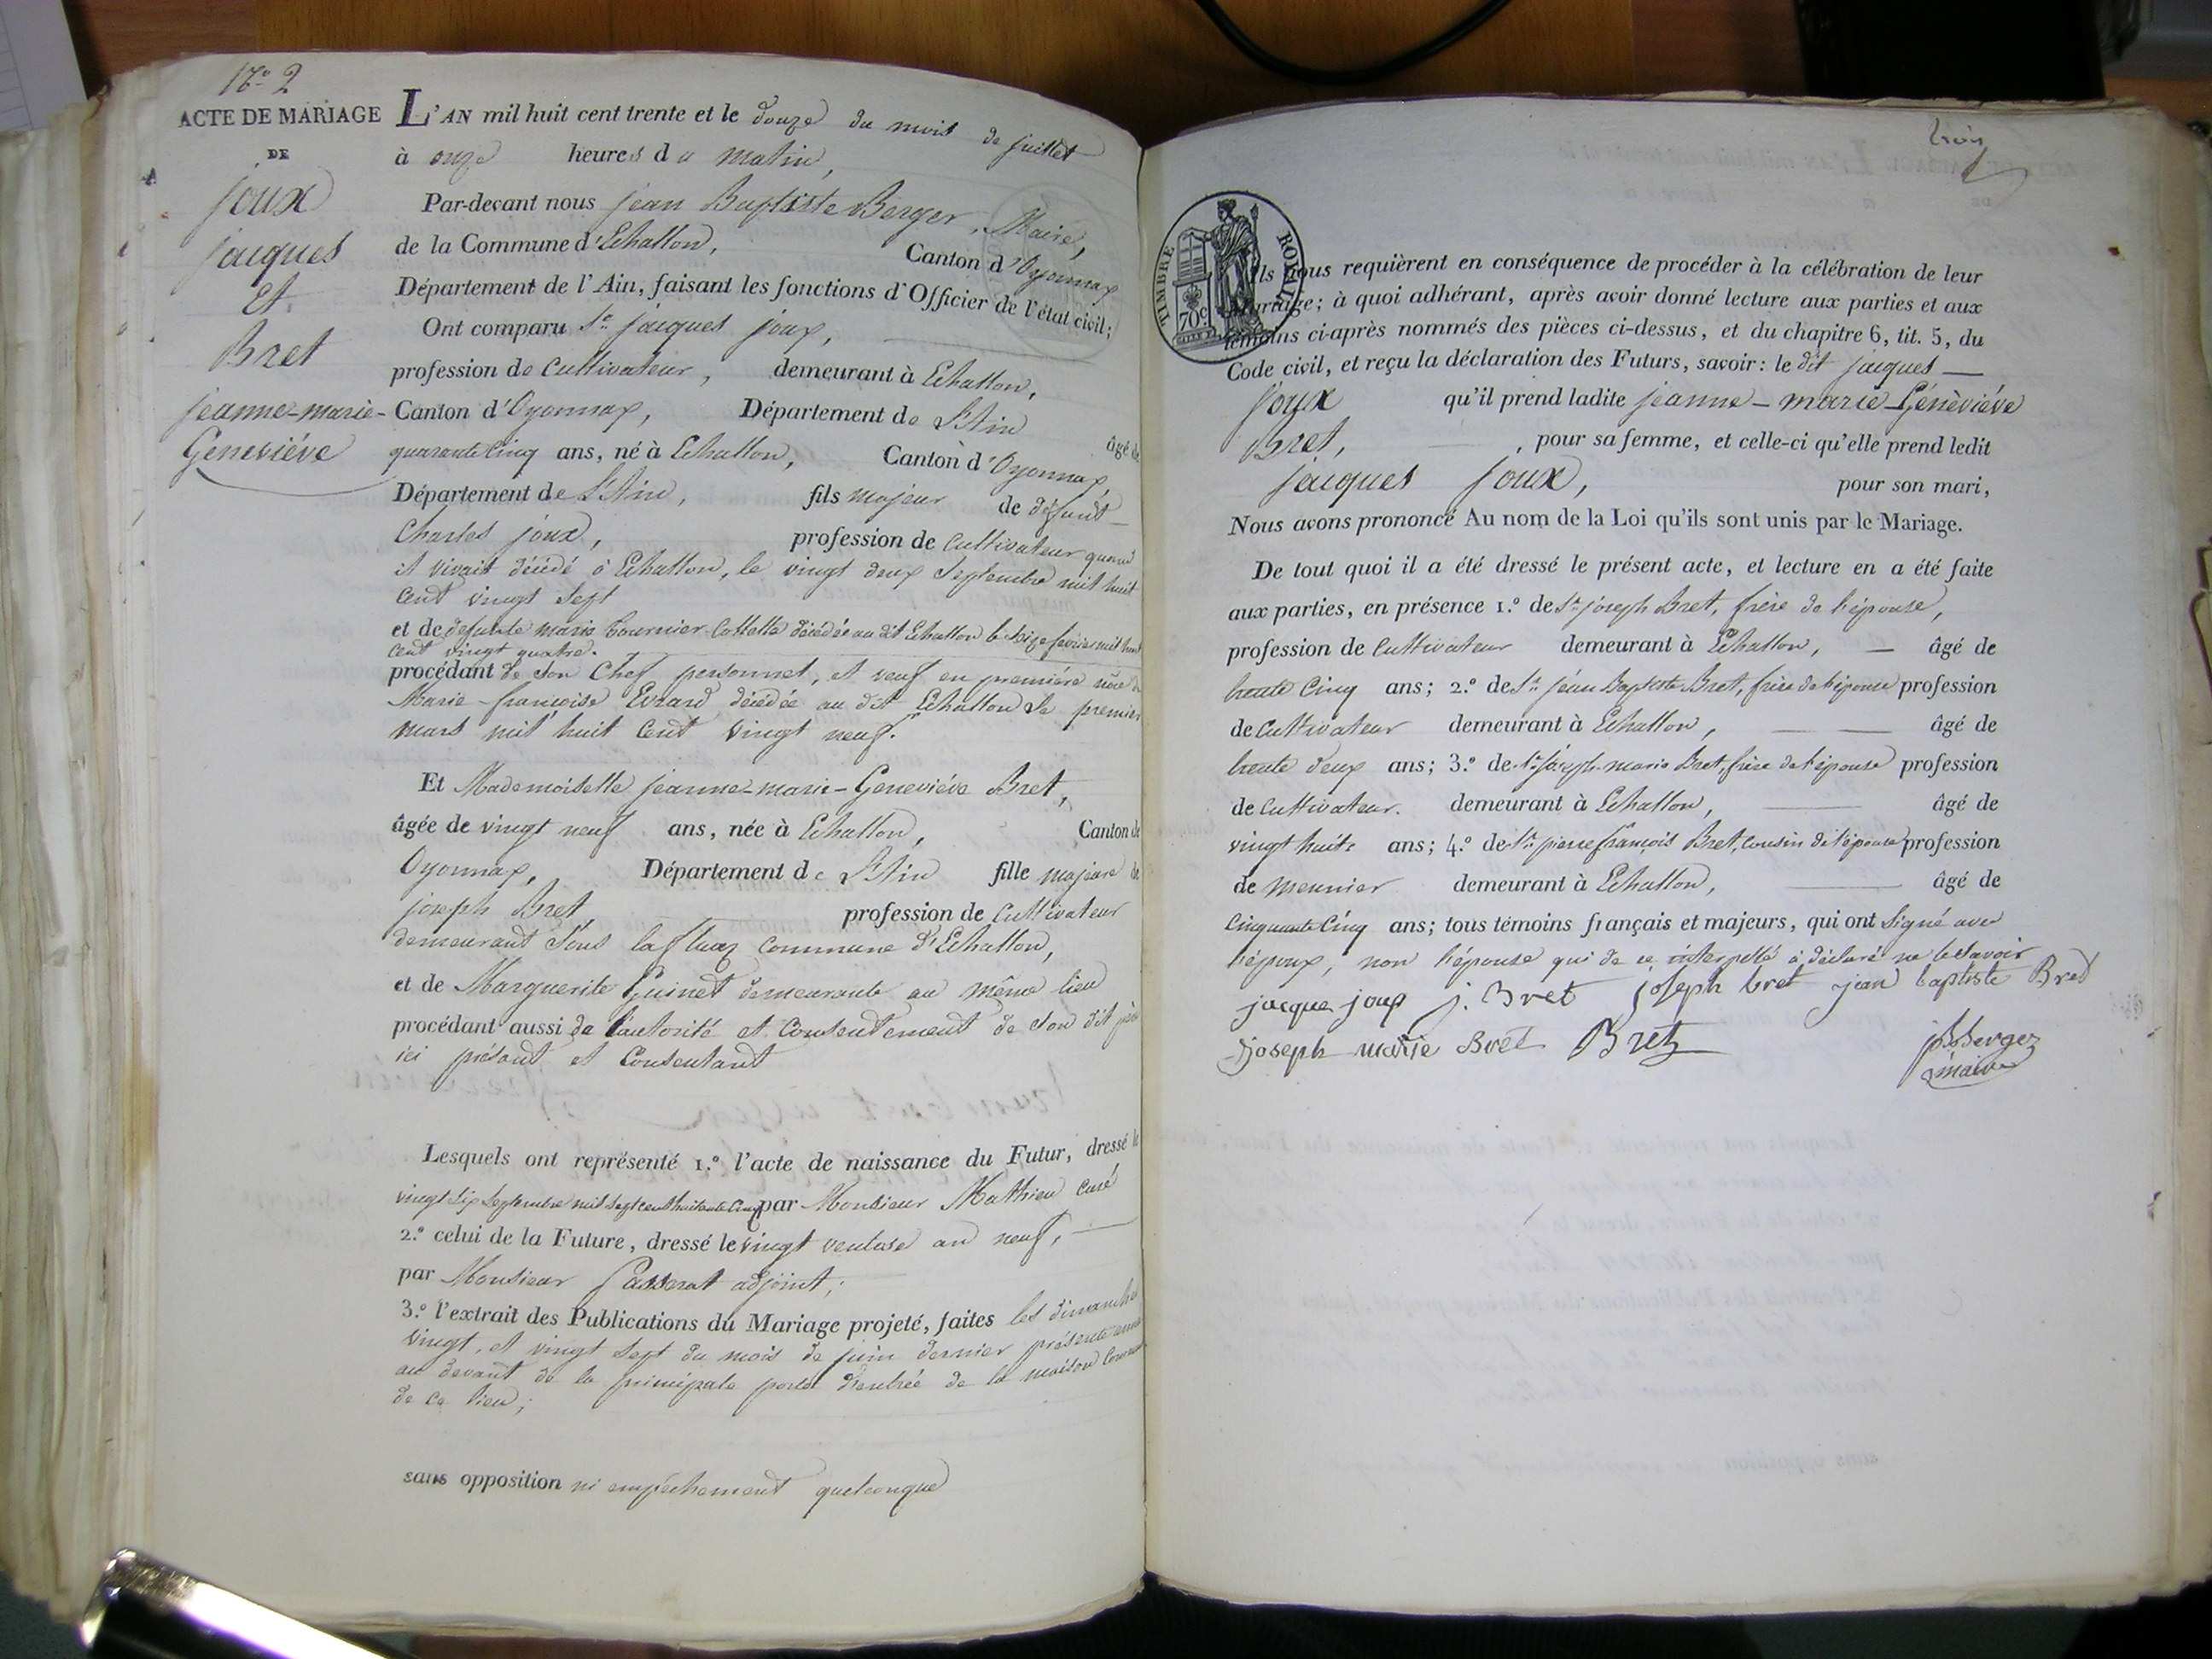 N.º 2
ACTE DE MARIAGE
DE
joux
jacques
Et
Bret
jeanne-marie-
Geneviéve
L'AN mil huit cent trente et le douze du mois de juillet
à onze heures du matin,
Par-devant nous jean Baptiste Berger, Maire,
de la Commune d'Echallon, Canton d'Oyonnax
Département de l'Ain, faisant les fonctions d'Officier de l'état civil;
Ont comparu Sr. jacques joux,
profession de Cultivateur, demeurant à Echallon,
Canton d'Oyonnax, Département de L'Ain âgé de
quarante Cinq ans, né à Echallon, Canton d'Oyonnax,
Département de L'Ain, fils majeur de défunt
Charles joux, profession de Cultivateur quand
il vivait décédé à Echallon, le vingt deux Septembre mil huit
Cent vingt Sept
et de defunte marie Tournier-Collette décédée au dit Echallon le seize fevrier mil huit
Cent vingt quatre.
procédant de son Chef personnel, et veuf en première
Marie-françoise Evrard décédée au dit Echallon le premier
mars mil huit Cent vingt neuf.
Et Mademoiselle jeanne-marie-Geneviéve Bret,
âgée de vingt neuf ans, née à Echallon, Canton de
Oyonnax, Département de L'Ain fille majeure de
joseph Bret, profession de Cultivateur
demeurant Sous commune d'Echallon,
et de Marguerite Guinet demeurante au même lieu
procédant aussi de l'autorité et Consentement de son dit père
ici présent et Consentant
Lesquels ont représenté 1.º l'acte de naissance du Futur, dressé le
vingt Six Septembre mil Sept cent huitante Cinq par Monsieur Mathieu curé
2.º celui de la Future, dressé le vingt ventose an neuf,
par Monsieur Passerat adjoint;
3.º l'extrait des Publications du Mariage projeté, faites les dimanches
vingt, et vingt Sept du mois de juin dernier présente année
au devant de la principale porte d'entrée de la maison Commune
de ce lieu;
sans opposition ni empêchement quelconque
trois
TIMBRE ROYAL
70c
Ils nous requièrent en conséquence de procéder à la célébration de leur
Mariage; à quoi adhérant, après avoir donné lecture aux parties et aux
témoins ci-après nommés des pièces ci-dessus, et du chapitre 6, tit. 5, du
Code civil, et reçu la déclaration des Futurs, savoir: le dit jacques
joux qu'il prend ladite jeanne-marie-Géneviéve
Bret, , pour sa femme, et celle-ci qu'elle prend ledit
jacques joux, pour son mari,
Nous avons prononcé Au nom de la Loi qu'ils sont unis par le Mariage.
De tout quoi il a été dressé le présent acte, et lecture en a été faite
aux parties, en présence 1.º de Sr. joseph Bret, frère de l'épouse,
profession de Cultivateur demeurant à Echallon, âgé de
trente Cinq ans; 2.º de Sr. jean Baptiste Bret, frère de l'épouse profession
de Cultivateur demeurant à Echallon, âgé de
trente deux ans; 3.º de Sr. joseph-marie Bret, frère de l'épouse profession
de Cultivateur. demeurant à Echallon, âgé de
vingt huit ans; 4.º de Sr. pierre françois Bret, cousin de l'épouse profession
de meunier demeurant à Echallon, âgé de
Cinquante Cinq ans; tous témoins français et majeurs, qui ont Signé avec
l'époux, non l'épouse qui de ce interpellé à déclaré ne le Savoir
jacque joux j. Bret joseph bret jean baptiste Bret
joseph marie Bret Bret
jB Berger
maire